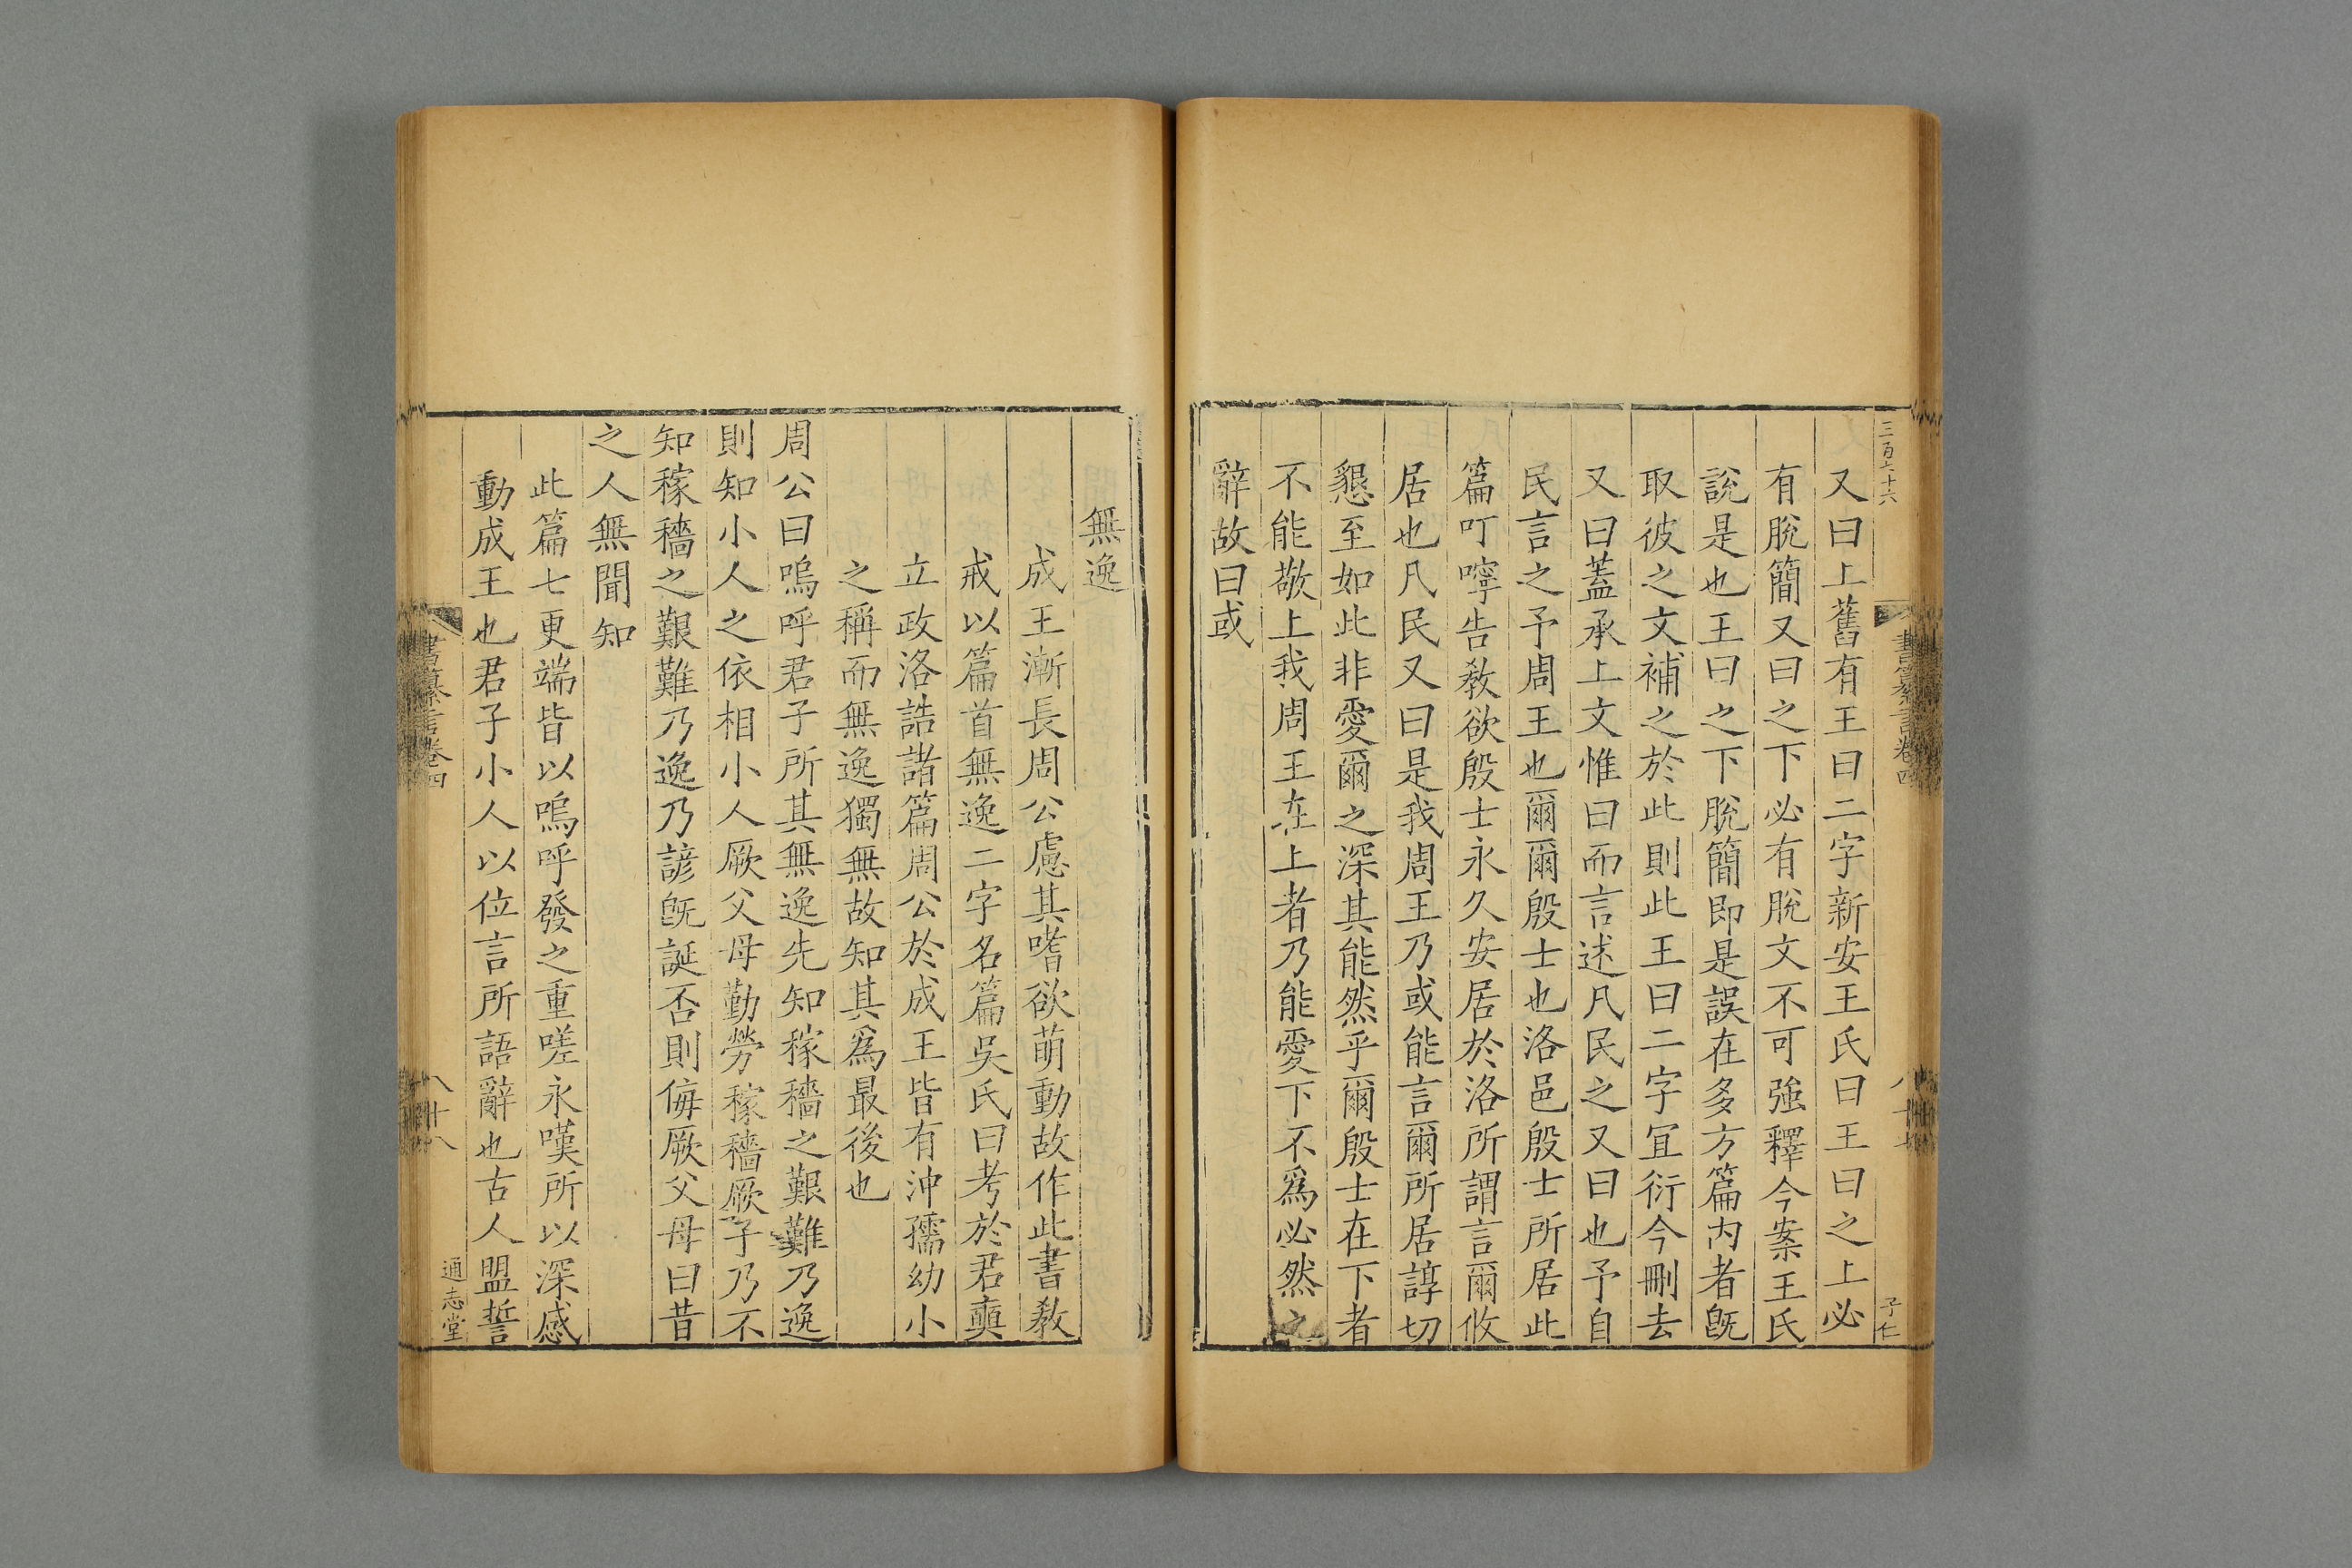 三百六十六
子仁
又曰上舊有王曰二字新安王氏曰王曰之上必
有脫簡又曰之下必有脫文不可強釋今案王氏
說是也王曰之下脫簡即是誤在多方篇内者旣
取彼之文補之於此則此王曰二字冝衍今刪去
又曰蓋承上文惟曰而言述凡民之又曰也予自
民言之予周王也爾爾殷士也洛邑殷士所居此
篇叮嚀告敎欲殷士永久安居於洛所謂言爾攸
居也凡民又曰是我周王乃或能言爾所居諄切
懇至如此非愛爾之深其能然乎爾殷士在下者
不能敬上我周王在上者乃能愛下不爲必然之
辭故曰或
無逸
成王漸長周公慮其嗜欲萌動故作此書敎
戒以篇首無逸二字名篇吳氏曰考於君奭
立政洛誥諸篇周公於成王皆有沖孺幼小
之稱而無逸獨無故知其爲最後也
周公曰嗚呼君子所其無逸先知稼穡之艱難乃逸
則知小人之依相小人厥父母勤勞稼穡厥子乃不
知稼穡之艱難乃逸乃諺旣誕否則侮厥父母曰昔
之人無聞知
此篇七更端皆以嗚呼發之重嗟永嘆所以深感
動成王也君子小人以位言所語辭也古人盟誓
書纂言卷四
八十八
通志堂